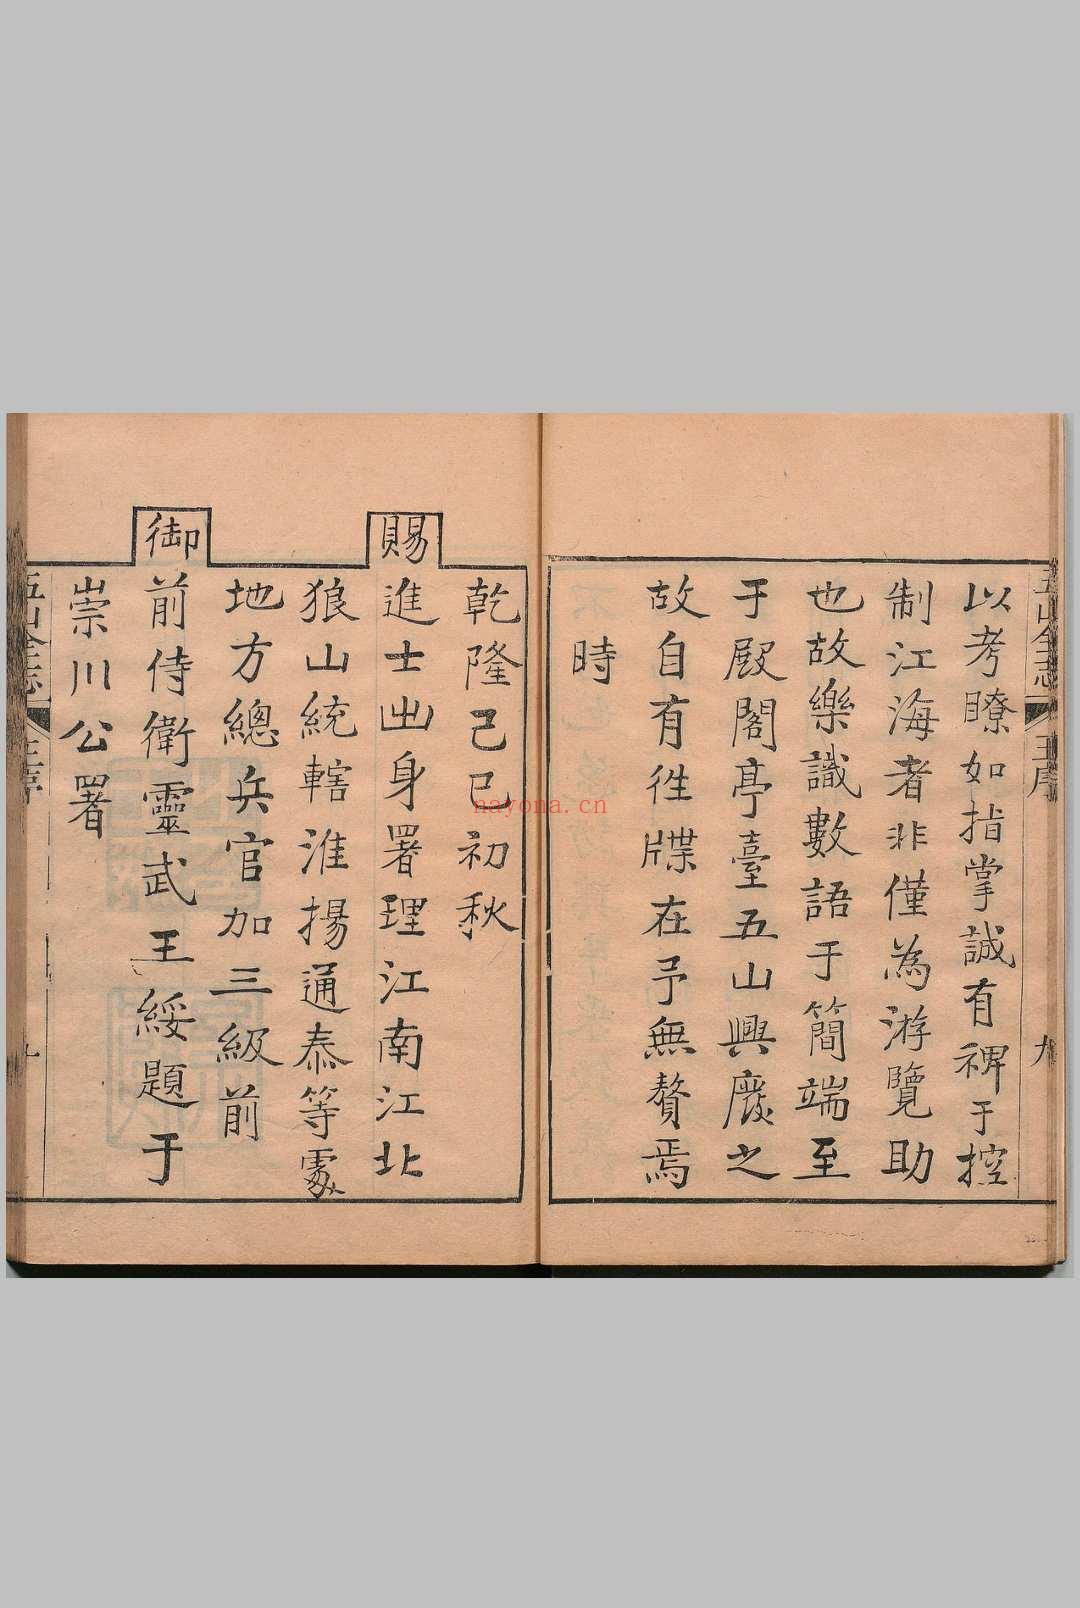 五山全志 王序 九
以考瞭如指掌誠有裨于控
制江海者非僅為游覽助
也故樂識數語于簡端至
于殿閣亭臺五山興廢之
故自有徃牒在予無贅焉
時
乾隆己巳初秋
賜
進士出身署理江南江北
狼山統轄淮揚通泰等處
地方總兵官加三級前
御
前侍衛靈武王綏題于
崇川公署
五山全志 王序 九
nayona.cn